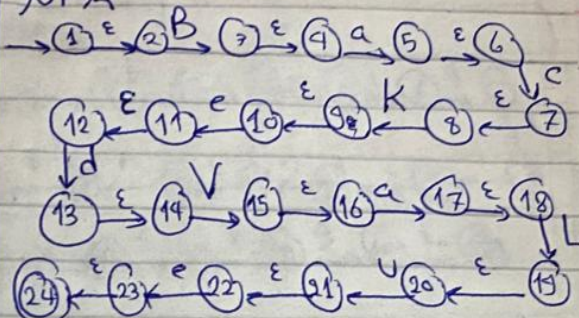 1 ε 2 B 3 ε 4 a 5 ε 6
c
12 ε 11 e 10 ε 9 K 8 ε 7
d
13 ε 14 V 15 ε 16 a 17 ε 18
L
24 ε 23 e 22 ε 21 U 20 ε 19